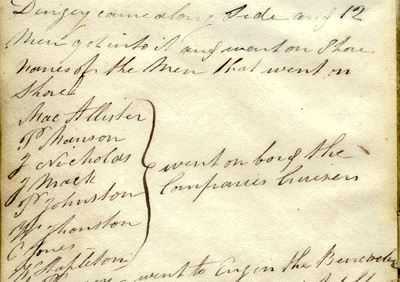 Dingey came along Side and 12
Men got into it and went on Shore
names of the Men that went on
Shore
Mac Allister
P Hanson
J Nicholas
J Mack
P Johnston
went on borg the
Companies Cruisers
C Jones
Stapleton
went to Eng in the